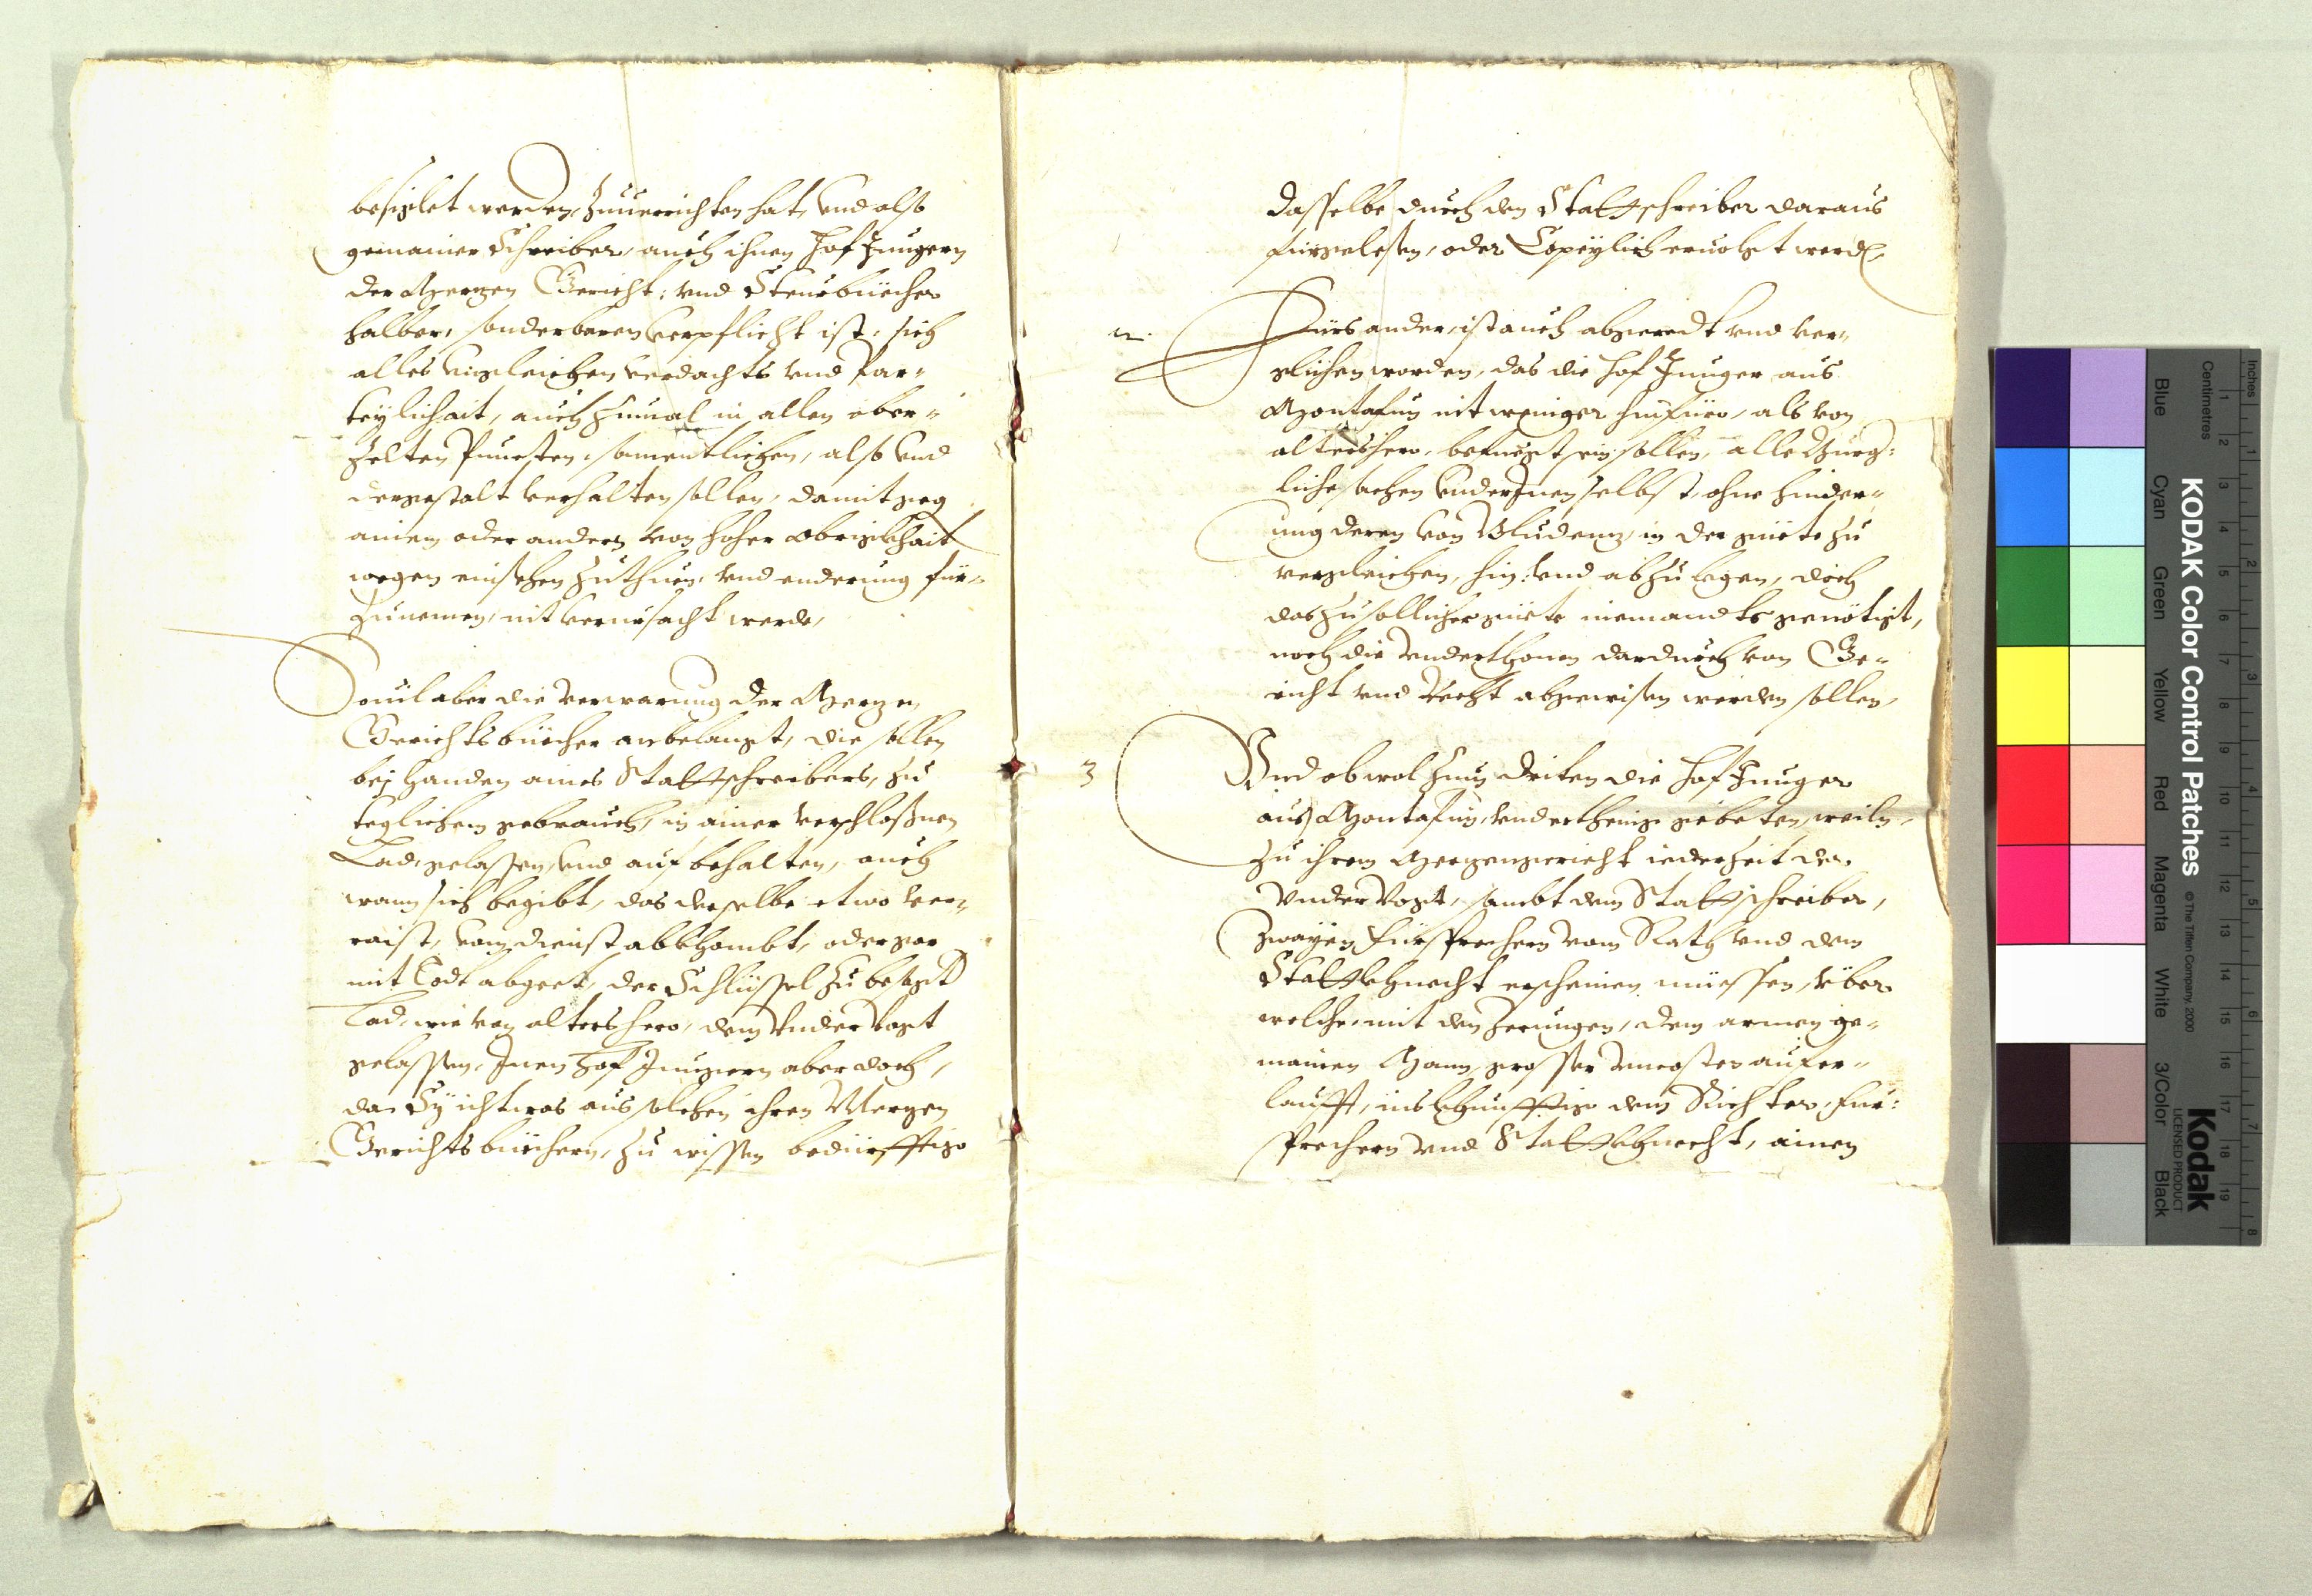 besiglet werden, zuuerrichten hat, vnd alß
gemainer Schreiber, auch ihnen Hof Jungern
der Mergen Gericht: vnd Steurbüecher
halber, sonderbaren verpflicht ist, sich
alles vngleichen verdachts vnd Par-
teylichait, auch zumal in allen ober-
zelten Puncten, samentlichen, also vnd
dergestalt verhalten sollen, damit geg
ainem oder andern von hoher Obrigkhait
wegen einsehen zuthuen, vnd enderung für-
zunemen, nit verursacht werde,
Souil aber die verwarung der Mergen
Gerichtsbüecher anbelangt, die sollen
bej handen aines Stattschreibers, zu
teglichem gebrauch, in ainer verschloßnen
Lad, gelassen, vnd aufbehalten, auch
wann sich begibt, das derselbe etwo ver-
raist, vom dienst abkhombt, oder gar
mit Todt abgeet, der Schlüssel zu besagt
Lad, wie von alters hero, dem Vndervogt
gelassen, Jnen Hof Jungern aber doch,
da Sy ichtwas aus solchen ihren Mergen
Gerichtsbüechern, zu wissen bedürfftig
dasselbe durch den Stattschreiber daraus
fürgelesen, oder Copeylich eruolgt werd
2.
Fürs ander, ist auch abgeredt vnd ver-
glichen worden, das die Hof Junger aus
Montafun nit weniger hinfüro, als von
altershero, befuegt sein sollen, alle Burg-
liche sachen vnder Jnen selbst, ohne hinder-
ung deren von Bludenz, in der güete zu
vergleichen, hin: vnd abzulegen, doch
das zu sollicher güete niemandts genötigt,
noch die Vnderthonen dardurch von Ge-
richt vnd Recht abgewisen werden sollen,
3
Vnd obwol zum driten die Hof Junger
aus Montafun, vnderthenig gebeten, weiln
zu ihrem Mergengericht iederzeit der
Vndervogt, sambt dem Stattschreiber,
zwayen Fürsprechern vom Rath vnd dem
Stattkhnecht erscheinen müessen, über
welche, mit den Zerungen, dem armen ge-
mainen Mann, grosser vncosten aufer-
laufft, inskhünfftig dem Richter, Für-
sprechern vnd Stattkhnecht, ainen
KODAK Color Control Patches
© The Tiffen Company, 2000
Kodak
LICENSED PRODUCT
Inches
Centimetres
Blue
Cyan
Green
Yellow
Red
Magenta
White
3/Color
Black